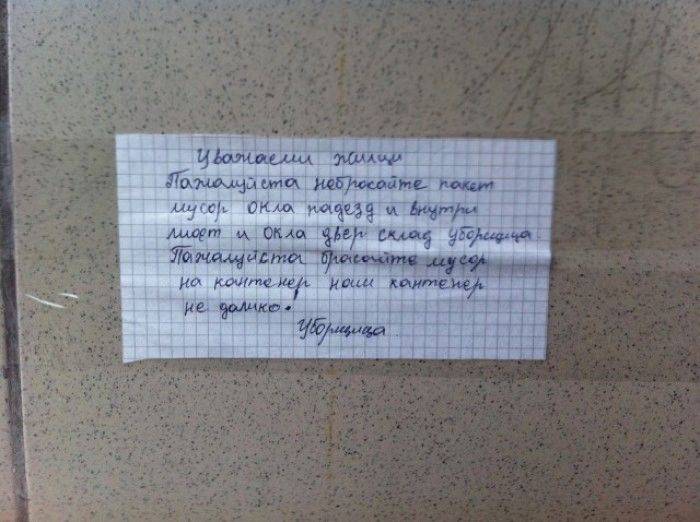 Уважаеми жилци
Пажалуйста небросайте пакет
мусор окла падезд и внутри
лифт и окла двер склад уборщица
Пажалуйста брасайте мусор
на кантенер наш кантенер
не далико.
Уборщица.